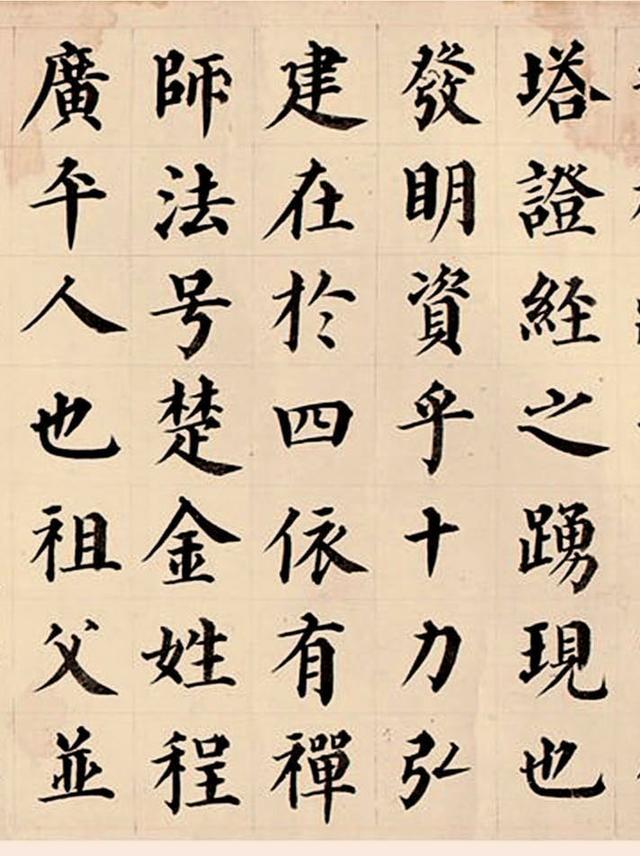 塔證經之踴現也
發明資乎十力弘
建在於四依有禪
師法号楚金姓程
廣平人也祖父並